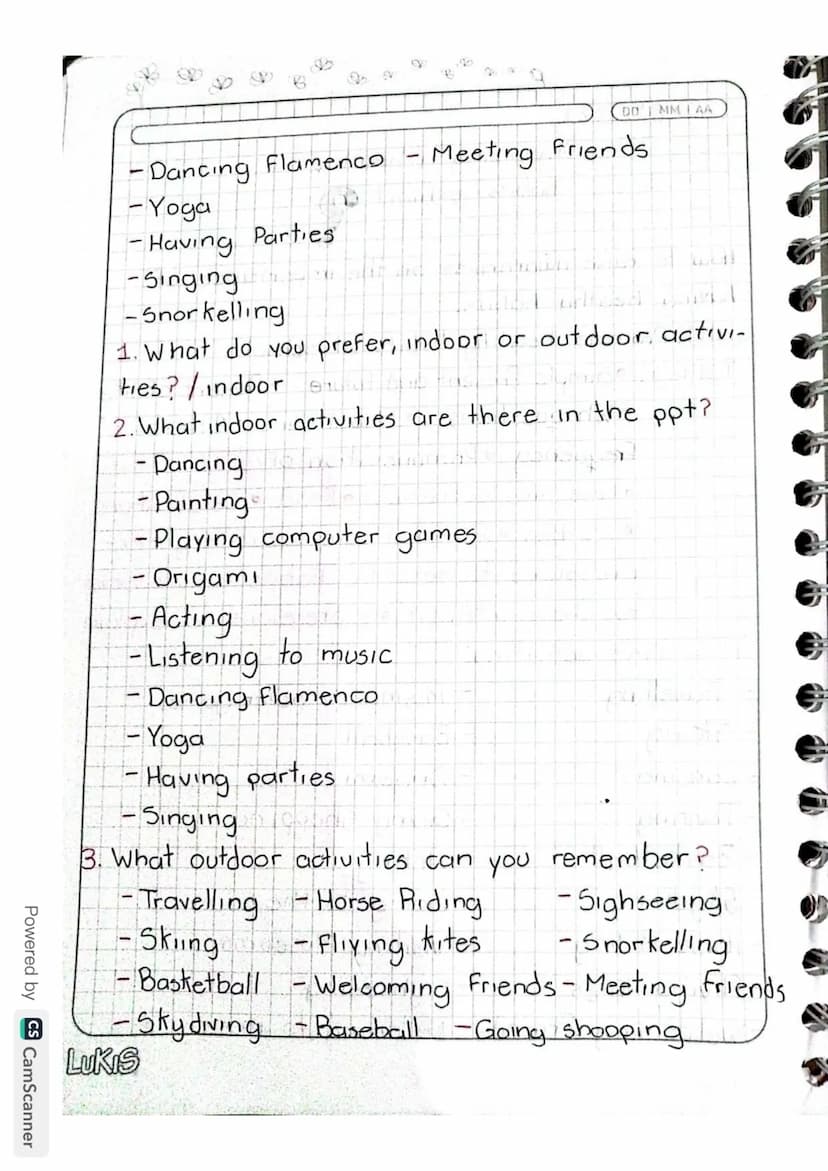 DD | MM | AA
- Dancing Flamenco - Meeting Friends
- Yoga
- Having Parties
- Singing
- Snorkelling
1. What do you prefer, indoor or outdoor activi-
ties? / indoor
2. What indoor activities are there in the ppt?
- Dancing
- Painting
- Playing computer games
- Origami
- Acting
- Listening to music
- Dancing flamenco
- Yoga
- Having parties
- Singing
3. What outdoor activities can you remember?
- Travelling - Horse Riding - Sighseeing
- Skiing - Fliying kites - Snorkelling
- Basketball - Welcoming Friends - Meeting Friends
- Skydiving - Baseball - Going shooping
LUKIS
Powered by CS CamScanner